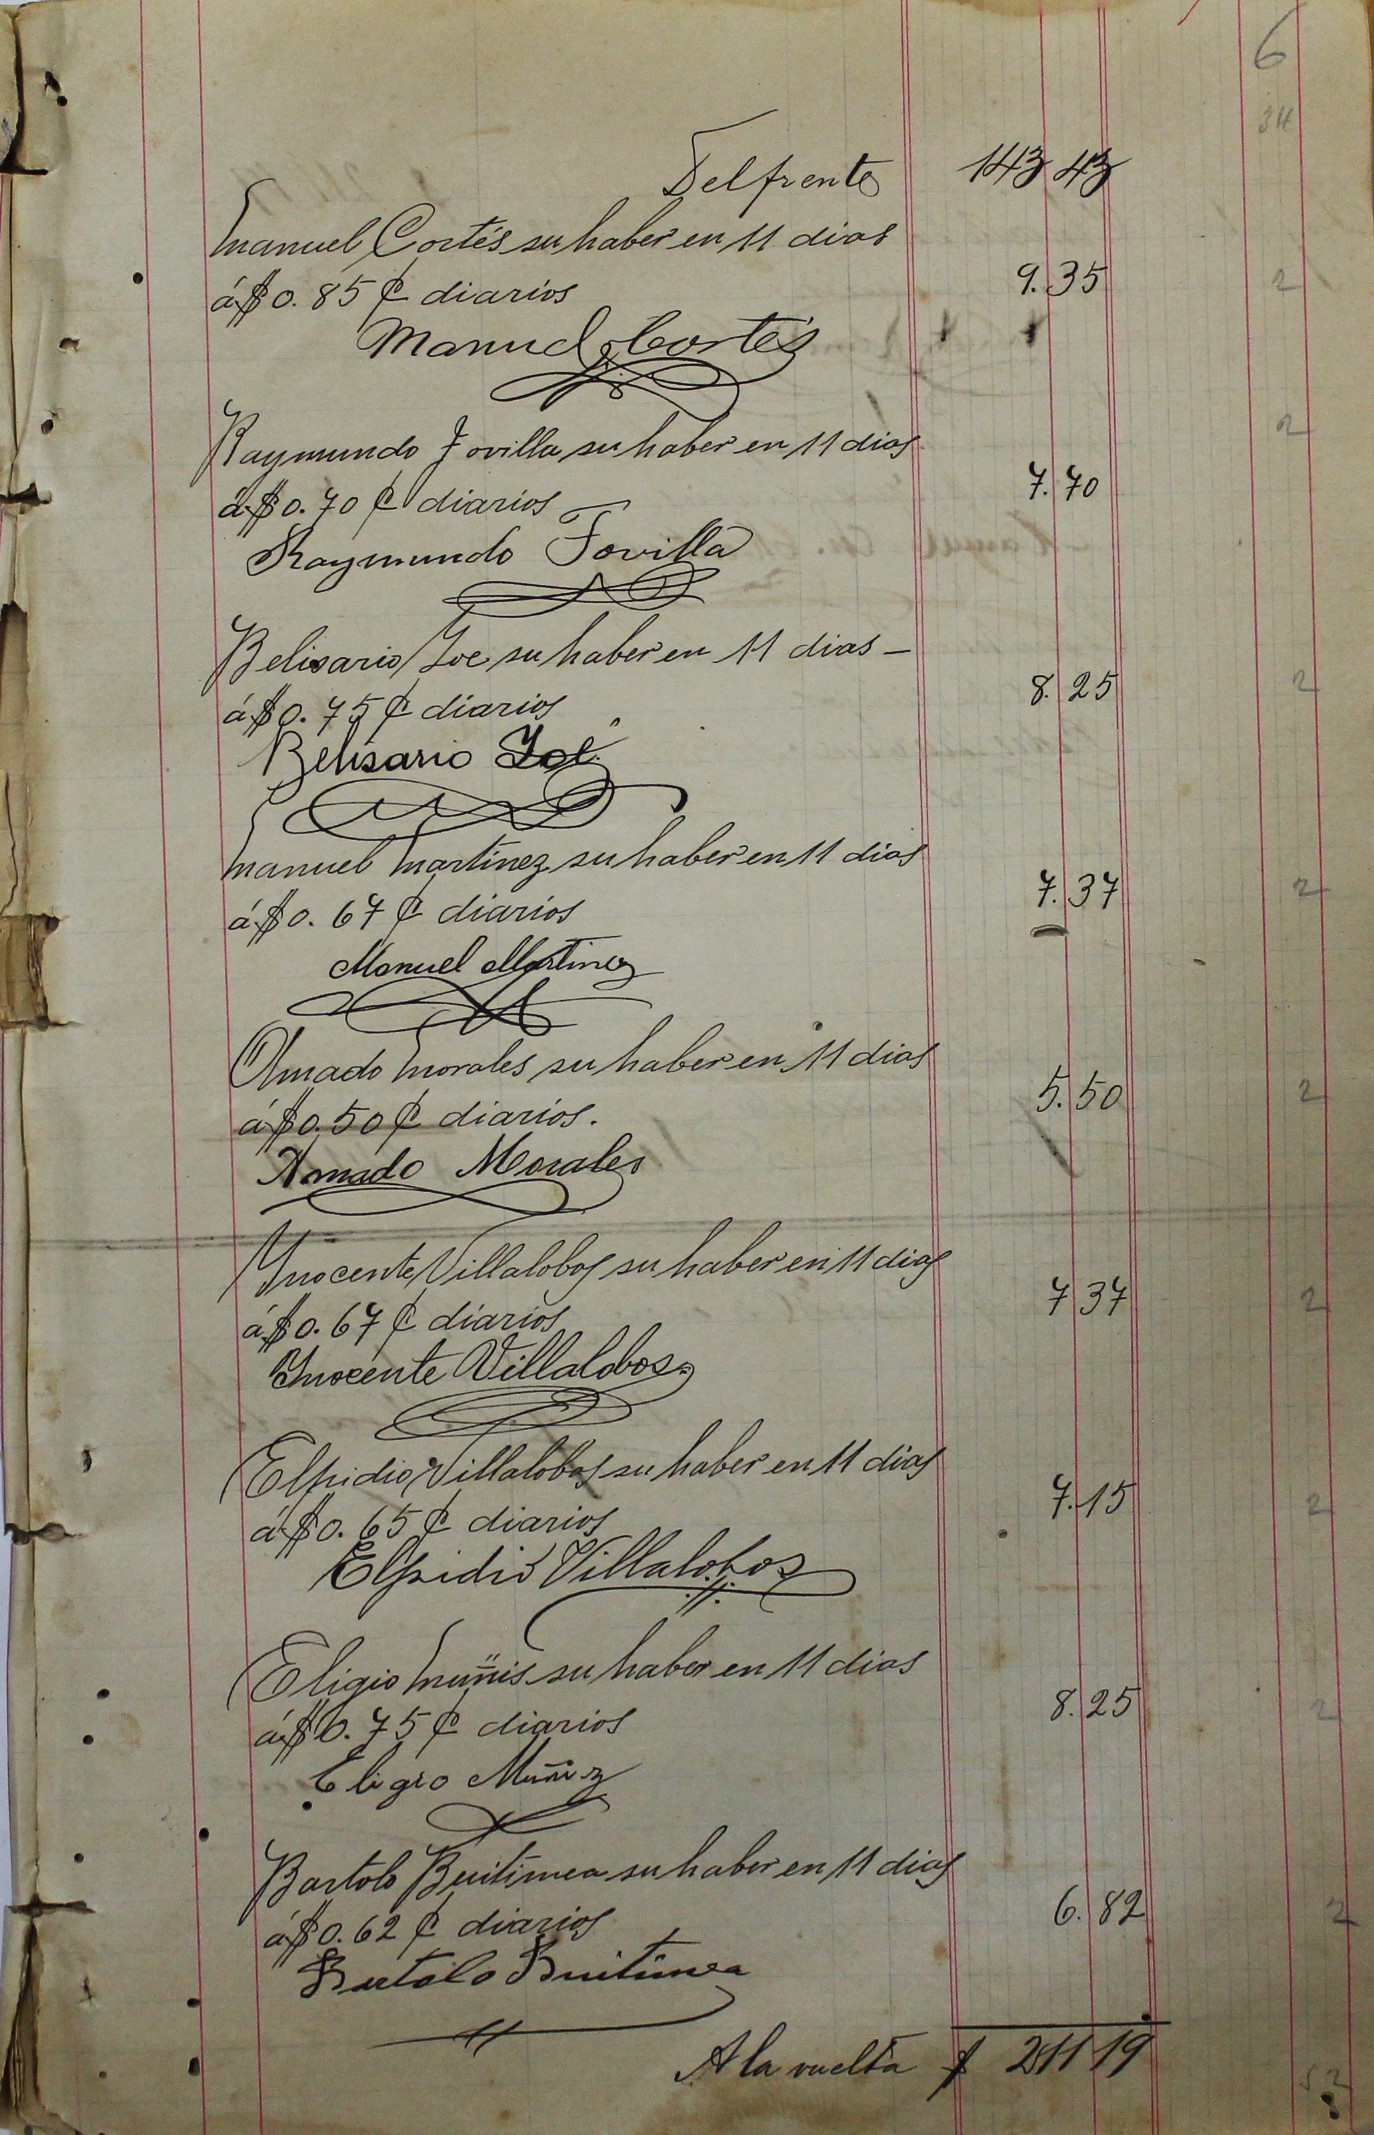 6
34
Del frente 143 43
Manuel Cortés su haber en 11 dias
á $0.85 ¢ diarios 9.35 2
Manuel Cortés
Raymundo Tovilla su haber en 11 dias 2
á $0.70 ¢ diarios 7.70
Raymundo Tovilla
Belisario Zoe su haber en 11 dias —
á $0.75 ¢ diarios 8.25 2
Belisario Zoé
Manuel Martínez su haber en 11 dias
á $0.67 ¢ diarios 7.37 2
Manuel Martinez
Amado Morales su haber en 11 dias
á $0.50 ¢ diarios. 5.50 2
Amado Morales
Ynocente Villalobos su haber en 11 dias
á $0.67 ¢ diarios 7 37 2
Ynocente Villalobos
Elpidio Villalobos su haber en 11 dias
á $0.65 ¢ diarios 7.15 2
Elpidio Villalobos
Eligio Muñis su haber en 11 dias
á $0.75 ¢ diarios 8.25 2
Eligio Muñiz
Bartolo Buitimea su haber en 11 dias
á $0.62 ¢ diarios 6.82 2
Bartolo Buitimea
A la vuelta $ 211 19